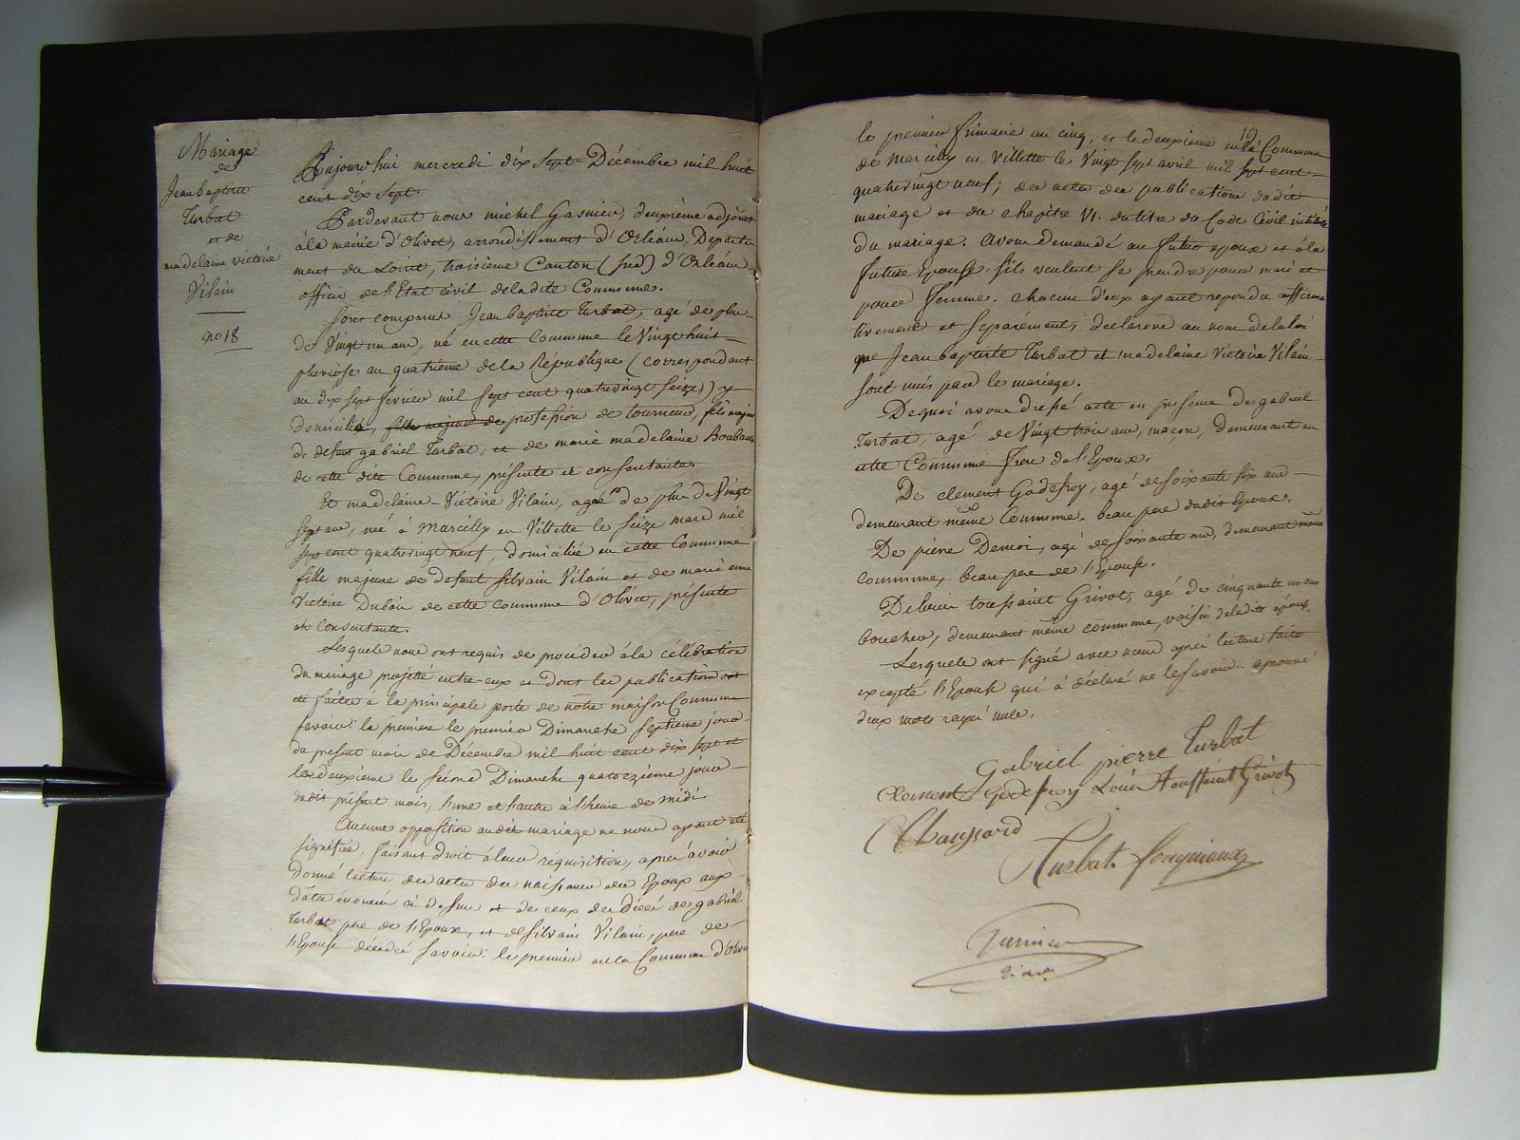 Mariage
de
Jean baptiste
Turbat
et de
madelaine victoire
Vilain
no 18
Aujourd'hui mercredi dix Sept Décembre mil huit
cent dix Sept.
Pardevant nous michel Gasnier, deuxième adjoint
à la mairie d'Olivet, arrondissement d'Orléans, Departe-
ment du Loiret, troisième Canton (Sud) d'Orléans
officier de l'Etat Civil de la dite Commune.
Sont comparus Jean baptiste Turbat, agé de plus
de Vingt un ans, né en cette Commune le Vingt huit
pluviose an quatrième de la République (correspondant
au dix sept février mil sept cent quatrevingt seize) y
domicilié, fils majeur de profession de tourneur, fils majeur
de defunt gabriel Turbat, et de marie madelaine Boubault
de cette dite Commune, présente et consentante
Et madelaine Victoire Vilain, agée de plus de Vingt
Sept ans, née à Marcilly en Villette le Seize mars mil
sept cent quatrevingt neuf, domiciliée en cette Commune
fille majeure de defunt Silvain Vilain et de marie anne
Victoire Dubois de cette commune d'Olivet, présente
et consentante.
Lesquels nous ont requis de procéder à la célébration
du mariage projetté entre eux et dont les publications ont
été faites à la principale porte de notre maison Commune
savoir: la première le premier Dimanche Septième jour
du présent mois de Décembre mil huit cent dix sept et
la deuxième le second Dimanche quatorzième jour
dudit présent mois, l'une et l'autre à l'heure de midi
Aucune opposition audit mariage ne nous ayant été
signifiée, faisant droit à leur réquisition, après avoir
donné lecture des actes de naissance des Epoux aux
dates énoncées ci dessus et de ceux de Décès de gabriel
Turbat père de l'Epoux, et de Silvain Vilain, père de
l'Epouse décédés savoir: le premier en la Commune d'Olivet
le premier frimaire an cinq, et le deuxième en la Commune
de Marcilly en Villette le Vingt Sept avril mil sept cent
quatrevingt neuf; des actes des publications dudit
mariage et du chapitre VI. du titre du Code Civil intitulé
Du mariage. Avons demandé au futur époux et à la
future Epouse s'ils veulent se prendre pour mari et
pour femme. chacun d'eux ayant repondu affirma-
tivement et séparément, déclarons au nom de la loi
que Jean baptiste Turbat et madelaine Victoire Vilain
sont unis par le mariage.
De quoi avons dressé acte en présence de gabriel
Turbat, agé de Vingt trois ans, maçon, demeurant en
cette Commune frère de l'Epoux.
De clement Godefroy, agé de soixante six ans
demeurant même Commune, beau père dudit Epoux.
De pierre Demoi, agé de soixante ans, demeurant même
commune, beau père de l'Epouse.
De louis toussaint Grivot, agé de cinquante un ans
boucher, demeurant même commune, voisin dudit époux.
Lesquels ont signé avec nous après lecture faite
excepté l'Epouse qui a déclaré ne le savoir. approuvé
deux mots rayés nuls.
Gabriel pierre Turbat
Clement Godefroy Louis Toussaint Grivot
Chaussard
Turbat fouqueaux
Gasnier